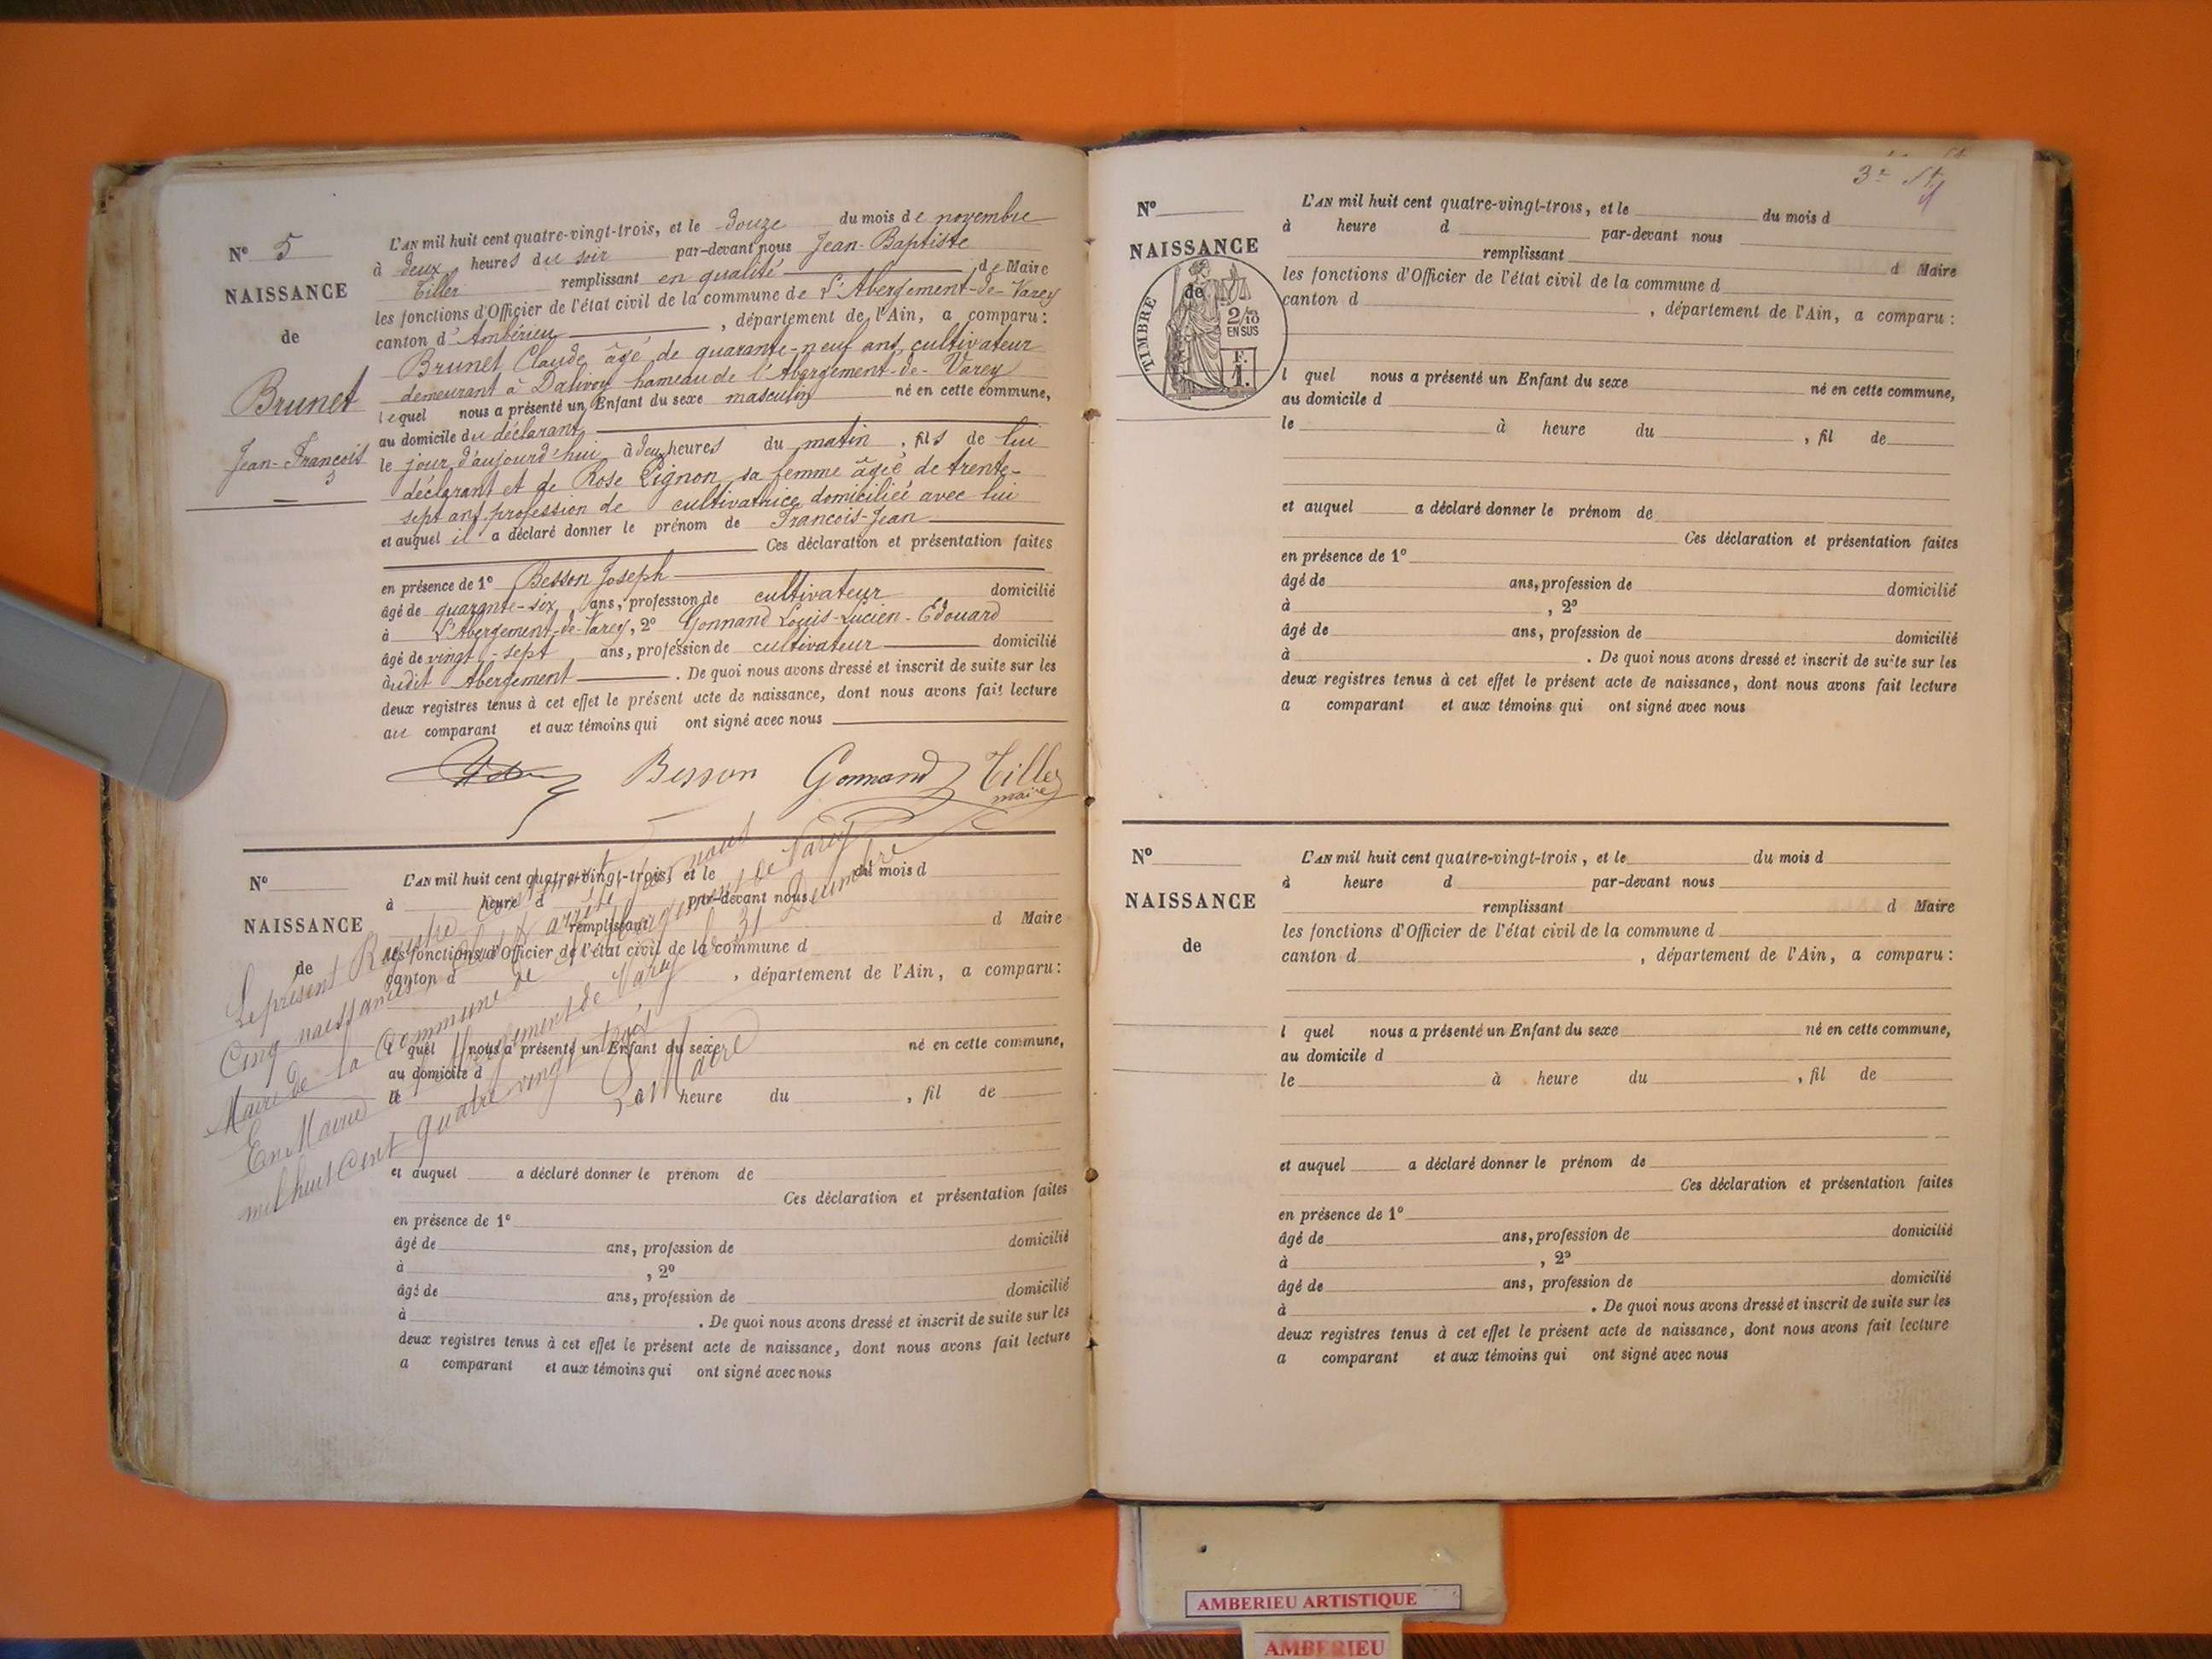 N° 5
NAISSANCE
de
Brunet
Jean-François
L'AN mil huit cent quatre-vingt-trois, et le douze du mois de novembre
à deux heures du soir par-devant nous Jean-Baptiste
Tiller remplissant en qualité de Maire
les fonctions d'Officier de l'état civil de la commune de L'Abergement-de-Varey
canton d'Ambérieu, département de l'Ain, a comparu:
Brunet Claude âgé de quarante-neuf ans, cultivateur
demeurant à Dalivoy hameau de l'Abergement-de-Varey
lequel nous a présenté un Enfant du sexe masculin né en cette commune,
au domicile du déclarant
le jour d'aujourd'hui à deux heures du matin, fils de lui
déclarant et de Rose Pignon sa femme âgée de trente-
sept ans profession de cultivatrice domiciliée avec lui
et auquel il a déclaré donner le prénom de Francois-Jean
Ces déclaration et présentation faites
en présence de 1° Besson Joseph
âgé de quarante-six ans, profession de cultivateur domicilié
à L'Abergement-de-Varey, 2° Gonnand Louis-Lucien-Edouard
âgé de vingt-sept ans, profession de cultivateur domicilié
àudit Abergement. De quoi nous avons dressé et inscrit de suite sur les
deux registres tenus à cet effet le présent acte de naissance, dont nous avons fait lecture
au comparant et aux témoins qui ont signé avec nous
Besson Gonnand Tiller
maire
N°
NAISSANCE
de
L'AN mil huit cent quatre-vingt-trois, et le du mois d
à heure d par-devant nous
remplissant d Maire
les fonctions d'Officier de l'état civil de la commune d
canton d , département de l'Ain, a comparu:
l quel nous a présenté un Enfant du sexe né en cette commune,
au domicile d
le à heure du , fil de
et auquel a déclaré donner le prénom de
Ces déclaration et présentation faites
en présence de 1°
âgé de ans, profession de domicilié
à , 2°
âgé de ans, profession de domicilié
à . De quoi nous avons dressé et inscrit de suite sur les
deux registres tenus à cet effet le présent acte de naissance, dont nous avons fait lecture
a comparant et aux témoins qui ont signé avec nous
Le présent Registre
Cinq naissances clos & arrêté par nous
Maire de la Commune de l'Abergement de Varey
En Mairie Abergement de Varey le 31 Décembre
mil huit cent quatre vingt trois
Le Maire
3e
N°
NAISSANCE
de
TIMBRE
2/10
EN SUS
F.
1.
L'AN mil huit cent quatre-vingt-trois, et le du mois d
à heure d par-devant nous
remplissant d Maire
les fonctions d'Officier de l'état civil de la commune d
canton d , département de l'Ain, a comparu:
l quel nous a présenté un Enfant du sexe né en cette commune,
au domicile d
le à heure du , fil de
et auquel a déclaré donner le prénom de
Ces déclaration et présentation faites
en présence de 1°
âgé de ans, profession de domicilié
à , 2°
âgé de ans, profession de domicilié
à . De quoi nous avons dressé et inscrit de suite sur les
deux registres tenus à cet effet le présent acte de naissance, dont nous avons fait lecture
a comparant et aux témoins qui ont signé avec nous
N°
NAISSANCE
de
L'AN mil huit cent quatre-vingt-trois, et le du mois d
à heure d par-devant nous
remplissant d Maire
les fonctions d'Officier de l'état civil de la commune d
canton d , département de l'Ain, a comparu:
l quel nous a présenté un Enfant du sexe né en cette commune,
au domicile d
le à heure du , fil de
et auquel a déclaré donner le prénom de
Ces déclaration et présentation faites
en présence de 1°
âgé de ans, profession de domicilié
à , 2°
âgé de ans, profession de domicilié
à . De quoi nous avons dressé et inscrit de suite sur les
deux registres tenus à cet effet le présent acte de naissance, dont nous avons fait lecture
a comparant et aux témoins qui ont signé avec nous
AMBERIEU ARTISTIQUE
AMBERIEU